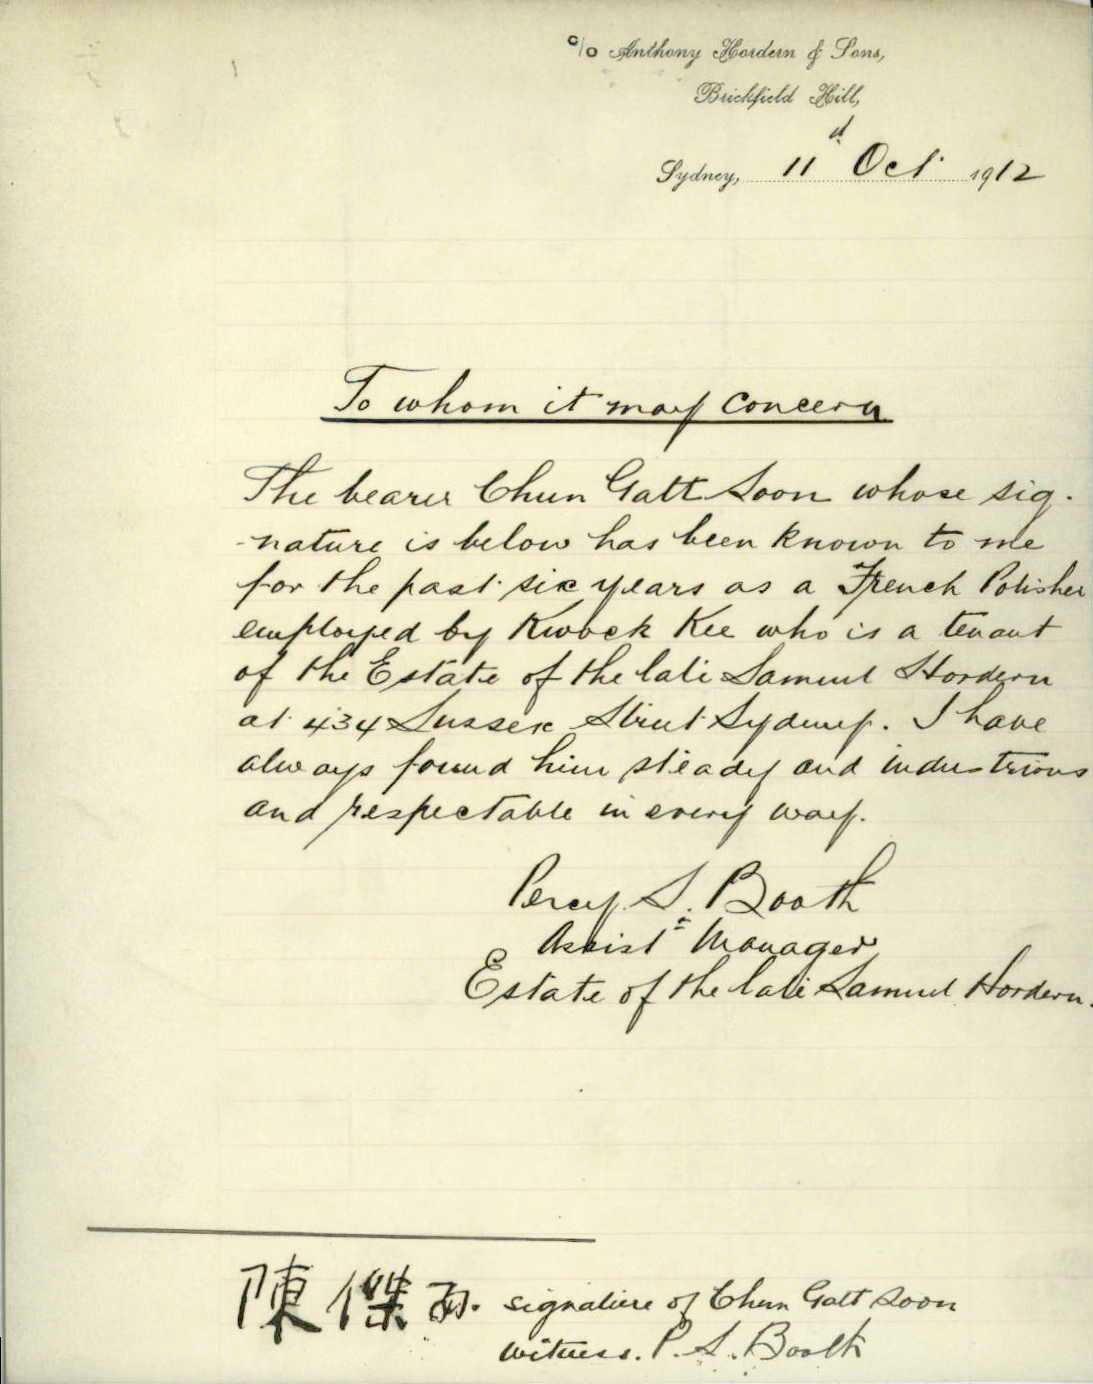 c/o Anthony Hordern & Sons,
Brickfield Hill,
Sydney, 11th Oct. 1912
To whom it may concern
The bearer Chun Gatt Soon whose sig-
-nature is below has been known to me
for the past six years as a French Polisher
employed by Kwock Kee who is a tenant
of the Estate of the late Samuel Hordern
at 434 Sussex Street Sydney. I have
always found him steady and industrious
and respectable in every way.
Percy S. Booth
Assist Manager
Estate of the late Samuel Hordern.
陳傑 signature of Chun Gatt Soon
witness. P. S. Booth